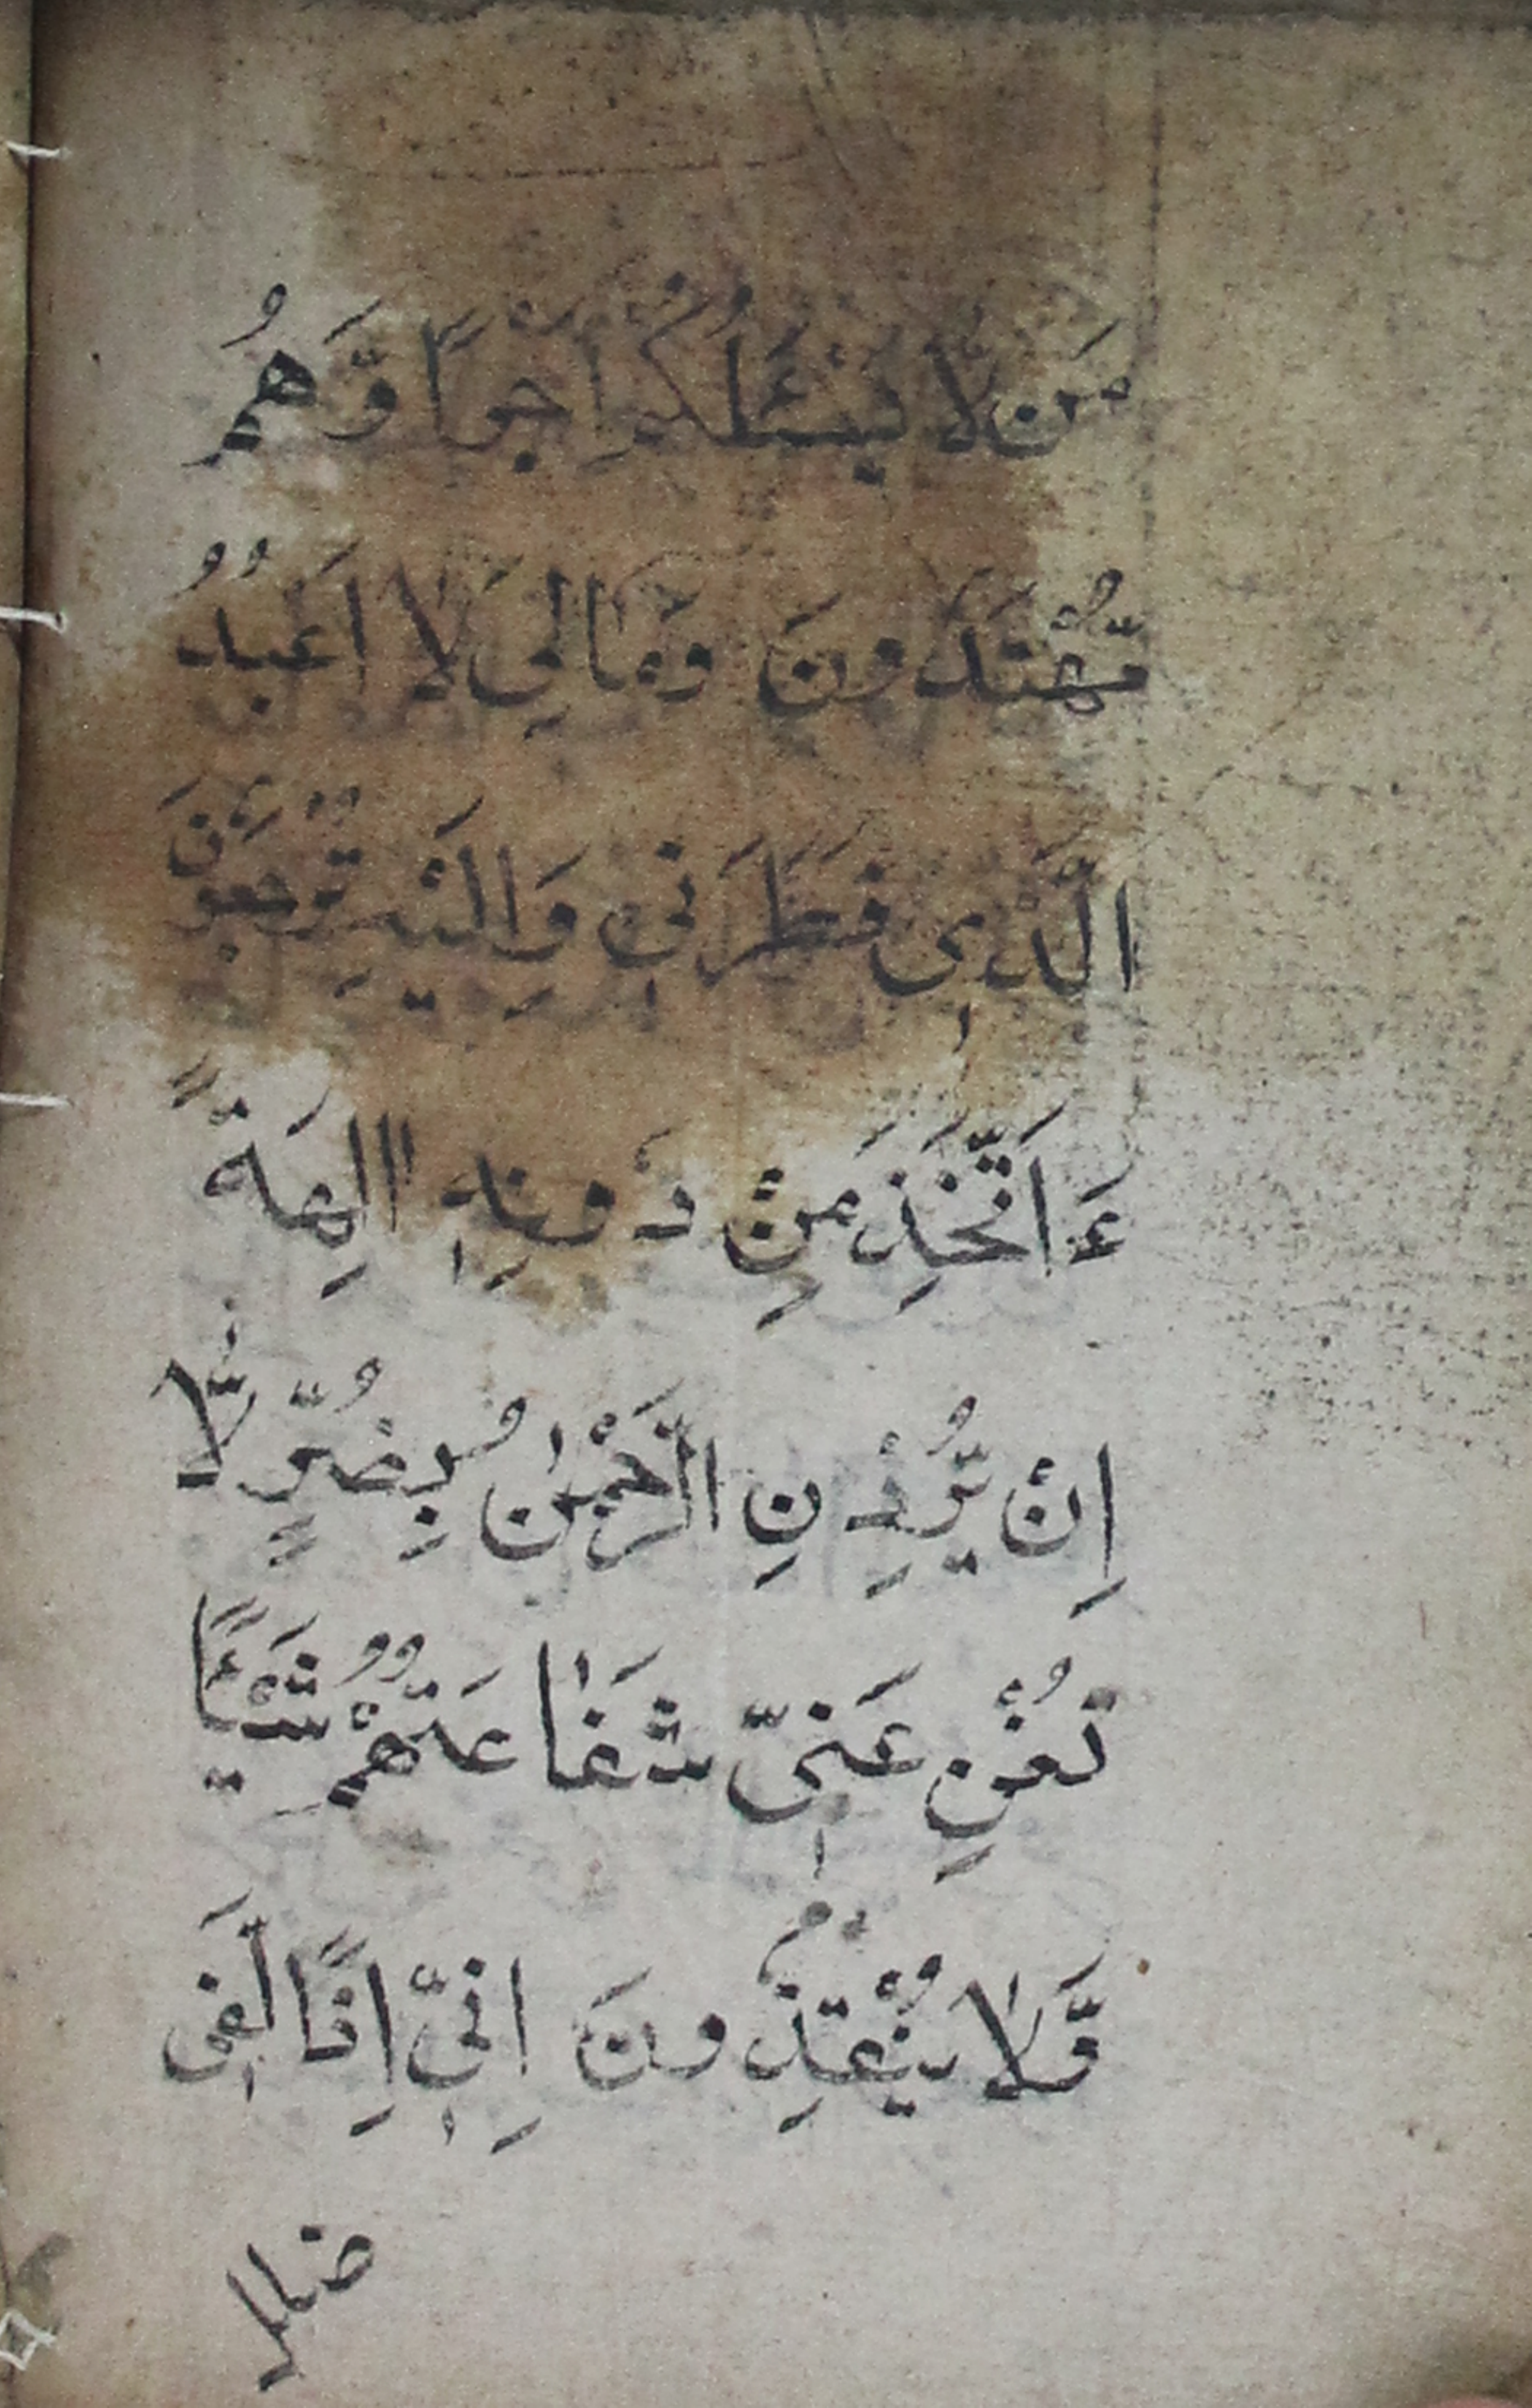 مَن لَّا يَسْـَٔلُكُمْ اَجْرًا وَّهُمْ
مُّهْتَدُونَ وَمَالِيَ لَا اَعْبُدُ
الَّذِى فَطَرَنِى وَاِلَيْهِ تُرْجَعُونَ
ءَاَتَّخِذُ مِنْ دُونِهِ اٰلِهَةً
اِنْ يُّرِدْنِ الرَّحْمٰنُ بِضُرٍّ لَّا
تُغْنِ عَنِّى شَفَاعَتُهُمْ شَيْـًٔا
وَّلَا يُنْقِذُونَ اِنِّى اِذًا لَّفِى
ضلال